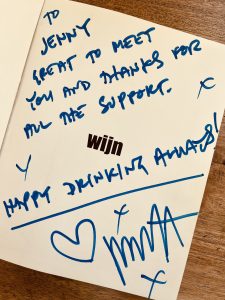 TO
JENNY
GREAT TO MEET
YOU AND THANKS FOR
ALL THE SUPPORT.
x
wijn
HAPPY DRINKING ALWAYS!
x
x